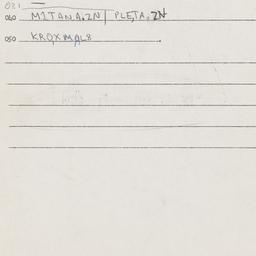 021 —
060 MITANA.ZN| PLETA.ZN
050 KROXMAL8